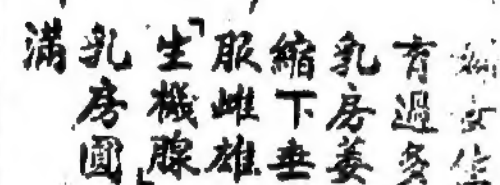 婦女生
育過多
乳房萎
縮下垂
服雌雄
「生機腺」
乳房圓
滿